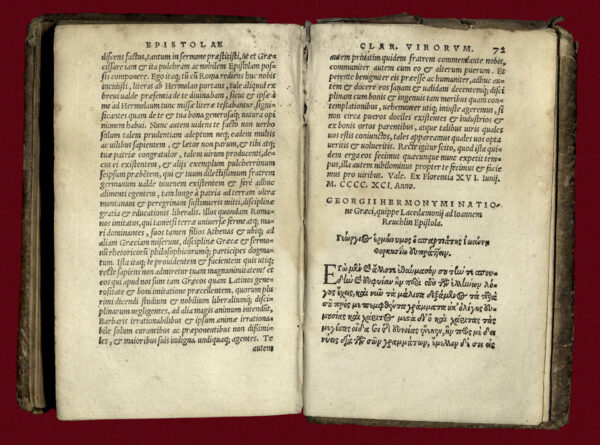 EPISTOLAE
discens factus, tantum in sermone præstitisti, ut et Græ
cissare iam & ita pulchram ac nobilem Epistolam pos
sis componere. Ego itaq; cũ è Roma rediens huc nobis
incidisti, literas ab Hermolao portans, tale aliquid ex
breui ualde præsentia de te diuinabam, sicuti & ipse à
me ad Hermolaum tunc missæ literæ testabantur, signifi
cantes quam de te & tua bona generosaq; natura opi
nionem habui. Nunc autem uidens te facto non uerbo
solum talem prudentiam adeptum neq; eadem multis
ac uilibus sapientem, & lætor non parum, & tibi atq;
tuæ patriæ congratulor, talem uirum producenti, de-
cus ei existentem, & alijs exemplum pulcherrimum
seipsum præbentem, qui & tuum dilectissimum fratrem
germanum ualde iuuenem existentem & ferè adhuc
alimenti egentem, tam longè à patria ad terram ultra
montanam & peregrinam sustinueris mitti, disciplinæ
gratia & educationis liberalis. Illos quondam Roma-
nos imitatus, qui tametsi terræ uniuersæ fermè atq; ma
ri dominantes, suos tamen filios Athenas & utiq; ad
aliam Græciam miserunt, disciplinæ Græcæ & sermo-
nũ rhetoricorũ philosophicorumq; participes dogma-
tum. Ista itaq; te prouidentem & facientem quis utiq;
rectè sapiens non admiretur tuam magnanimitatem? et
eos qui apud nos sunt tam Græcos quam Latinos gene-
rositate & boni imitatione præcellentem, quorum plu
rimi dicendi studium & nobilium liberaliumq; disci-
plinarum negligentes, ad alia magis animum intendũt,
Barbaris irrationabilibus & ipsum animæ irrationa-
bile solum curantibus ac præponentibus non dissimi-
les, & maioribus suis indigna undiquaq; agentes. Te
autem
CLAR. VIRORVM. 72
autem priuatim quidem fratrem commendante nobis,
communiter autem cum eo & alterum puerum. Et
petente benigniter eis præesse ac humaniter, adhuc au-
tem & docere eos sanam & ualidam decentemq; disci
plinam cum bonis & ingenuis tam moribus quam con-
templationibus, uehementer utiq; intuste ageremus, si
non circa pueros dociles existentes & industrios &
ex bonis ortos parentibus, atque talibus uiris quales
uos estis coniunctos, tales appareamus quales uos opta
ueritis & uolueritis. Rectè igitur scito, quod ista qui-
dem erga eos fecimus quæcunque nunc expetit tem-
pus, illa autem nobilominus propter te fecimus & facie
mus pro uiribus. Vale. Ex Florentia XVI. Iunij.
M. CCCC. XCI. Anno.
GEORGII HERMONYMI NATIO-
ne Græci, quippe Lacedæmonij ad Ioannem
Reuchlin Epistola.